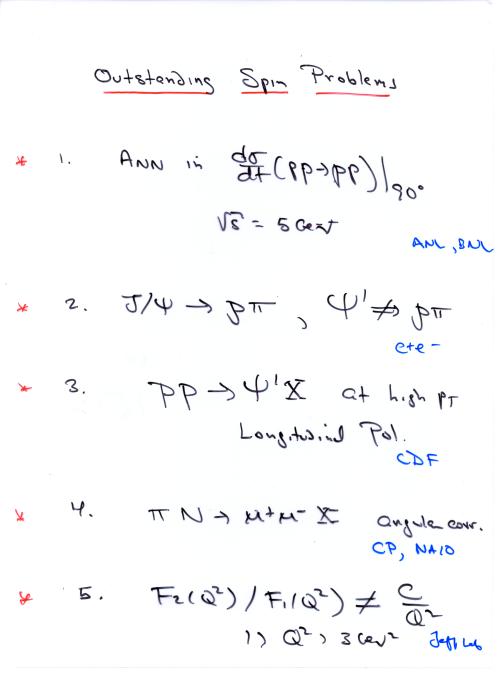 Outstanding Spin Problems
* 1. ANN in dσ/dt (pp→pp)|90°
√s = 5 GeV
ANL, BNL
* 2. J/ψ → ρπ , ψ' ↛ ρπ
e+e-
* 3. pp → ψ'X at high pT
Longitudinal Pol.
CDF
* 4. πN → μ+μ- X angular corr.
CP, NA10
* 5. F2(Q²) / F1(Q²) ≠ C/Q²
Q² > 3 GeV² Jeff Lab